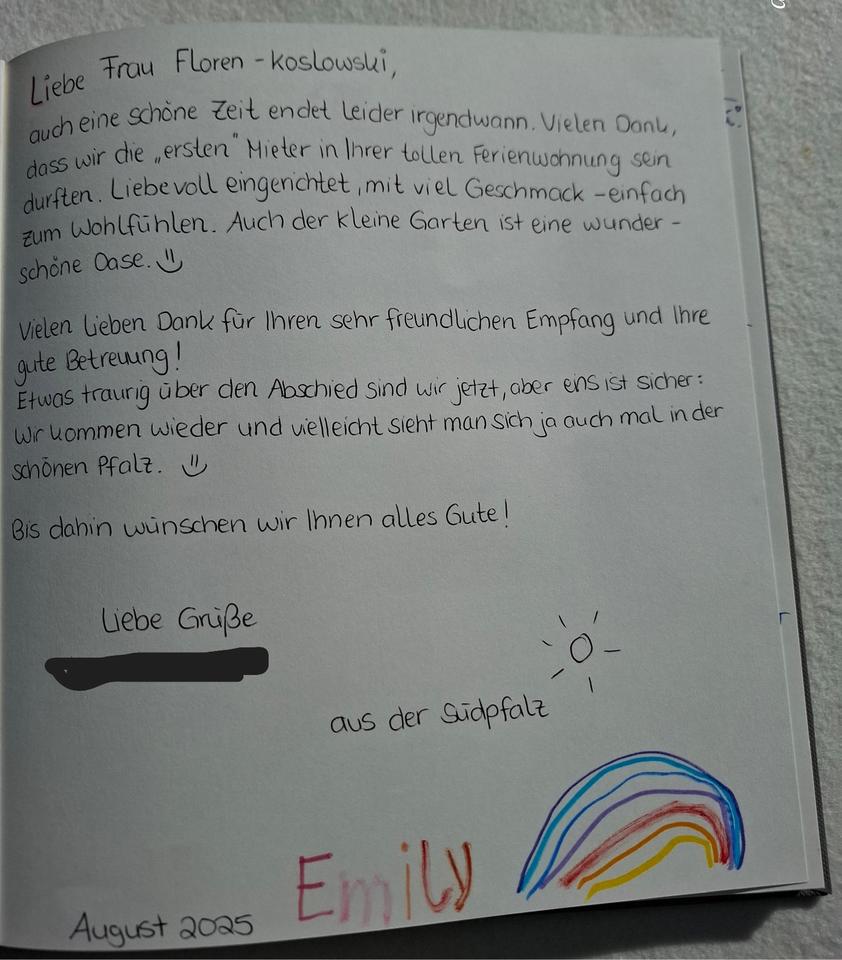 Liebe Frau Floren-Koslowski,
auch eine schöne Zeit endet leider irgendwann. Vielen Dank,
dass wir die „ersten" Mieter in Ihrer tollen Ferienwohnung sein
durften. Liebevoll eingerichtet, mit viel Geschmack - einfach
zum Wohlfühlen. Auch der kleine Garten ist eine wunder-
schöne Oase.
Vielen lieben Dank für Ihren sehr freundlichen Empfang und Ihre
gute Betreuung!
Etwas traurig über den Abschied sind wir jetzt, aber eins ist sicher:
Wir kommen wieder und vielleicht sieht man sich ja auch mal in der
schönen Pfalz.
Bis dahin wünschen wir Ihnen alles Gute!
Liebe Grüße
aus der Südpfalz
Emily
August 2025